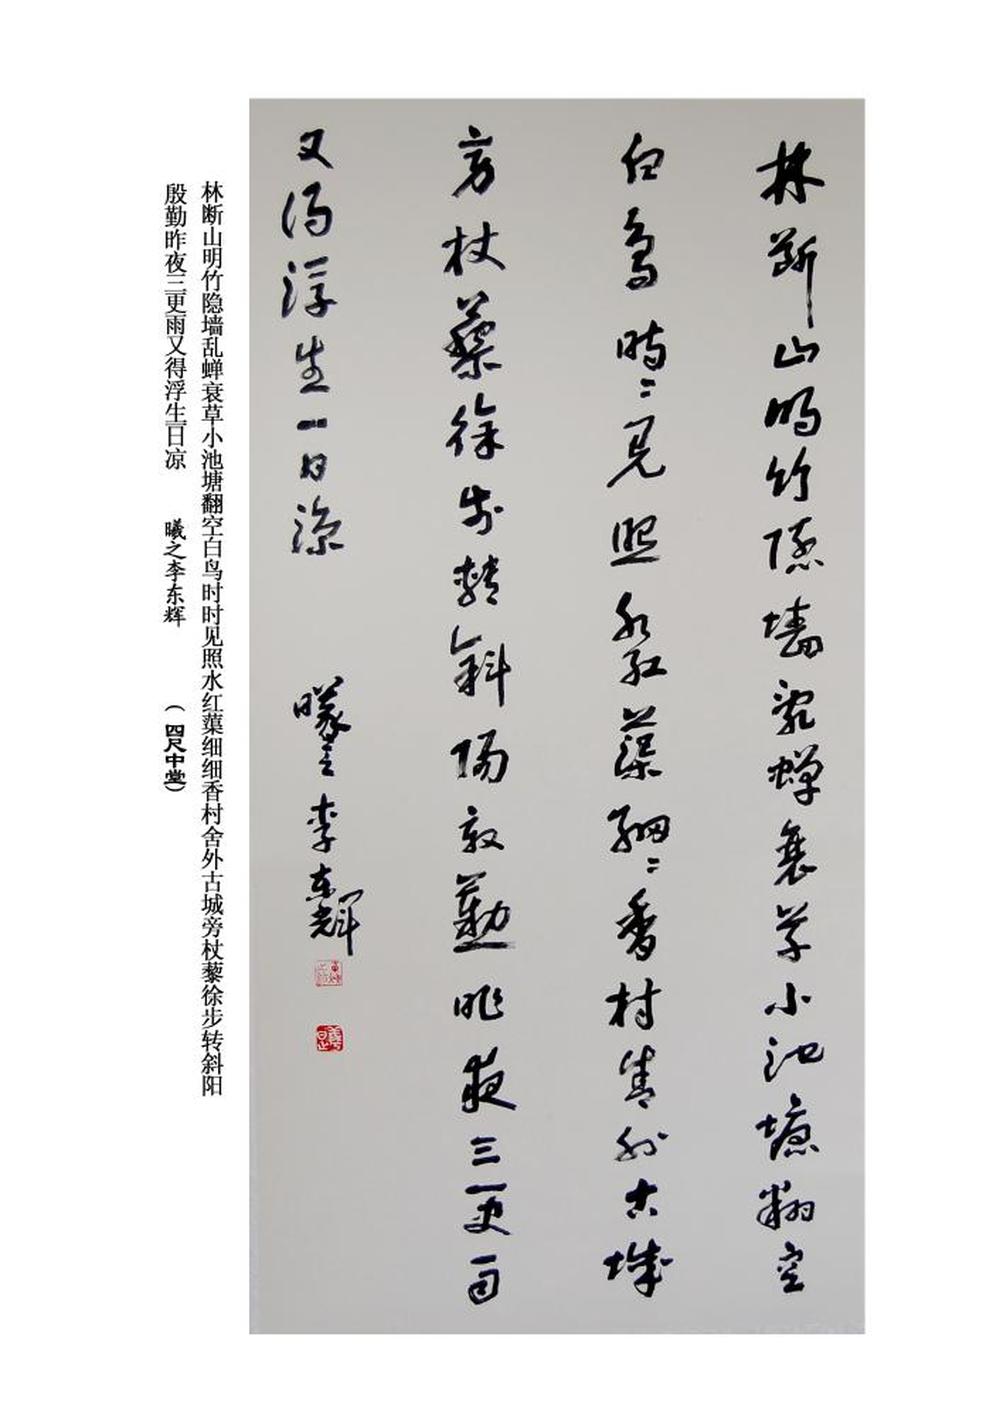 林斷山明竹隱墻亂蟬衰草小池塘翻空
白鳥時〻見照水紅蕖細〻香村舍外古城
旁杖藜徐步轉斜陽殷勤昨夜三更雨
又得浮生一日涼 曦之李東輝
林断山明竹隐墙乱蝉衰草小池塘翻空白鸟时时见照水红蕖细细香村舍外古城旁杖藜徐步转斜阳
殷勤昨夜三更雨又得浮生一日凉 曦之李东辉 (四尺中堂)